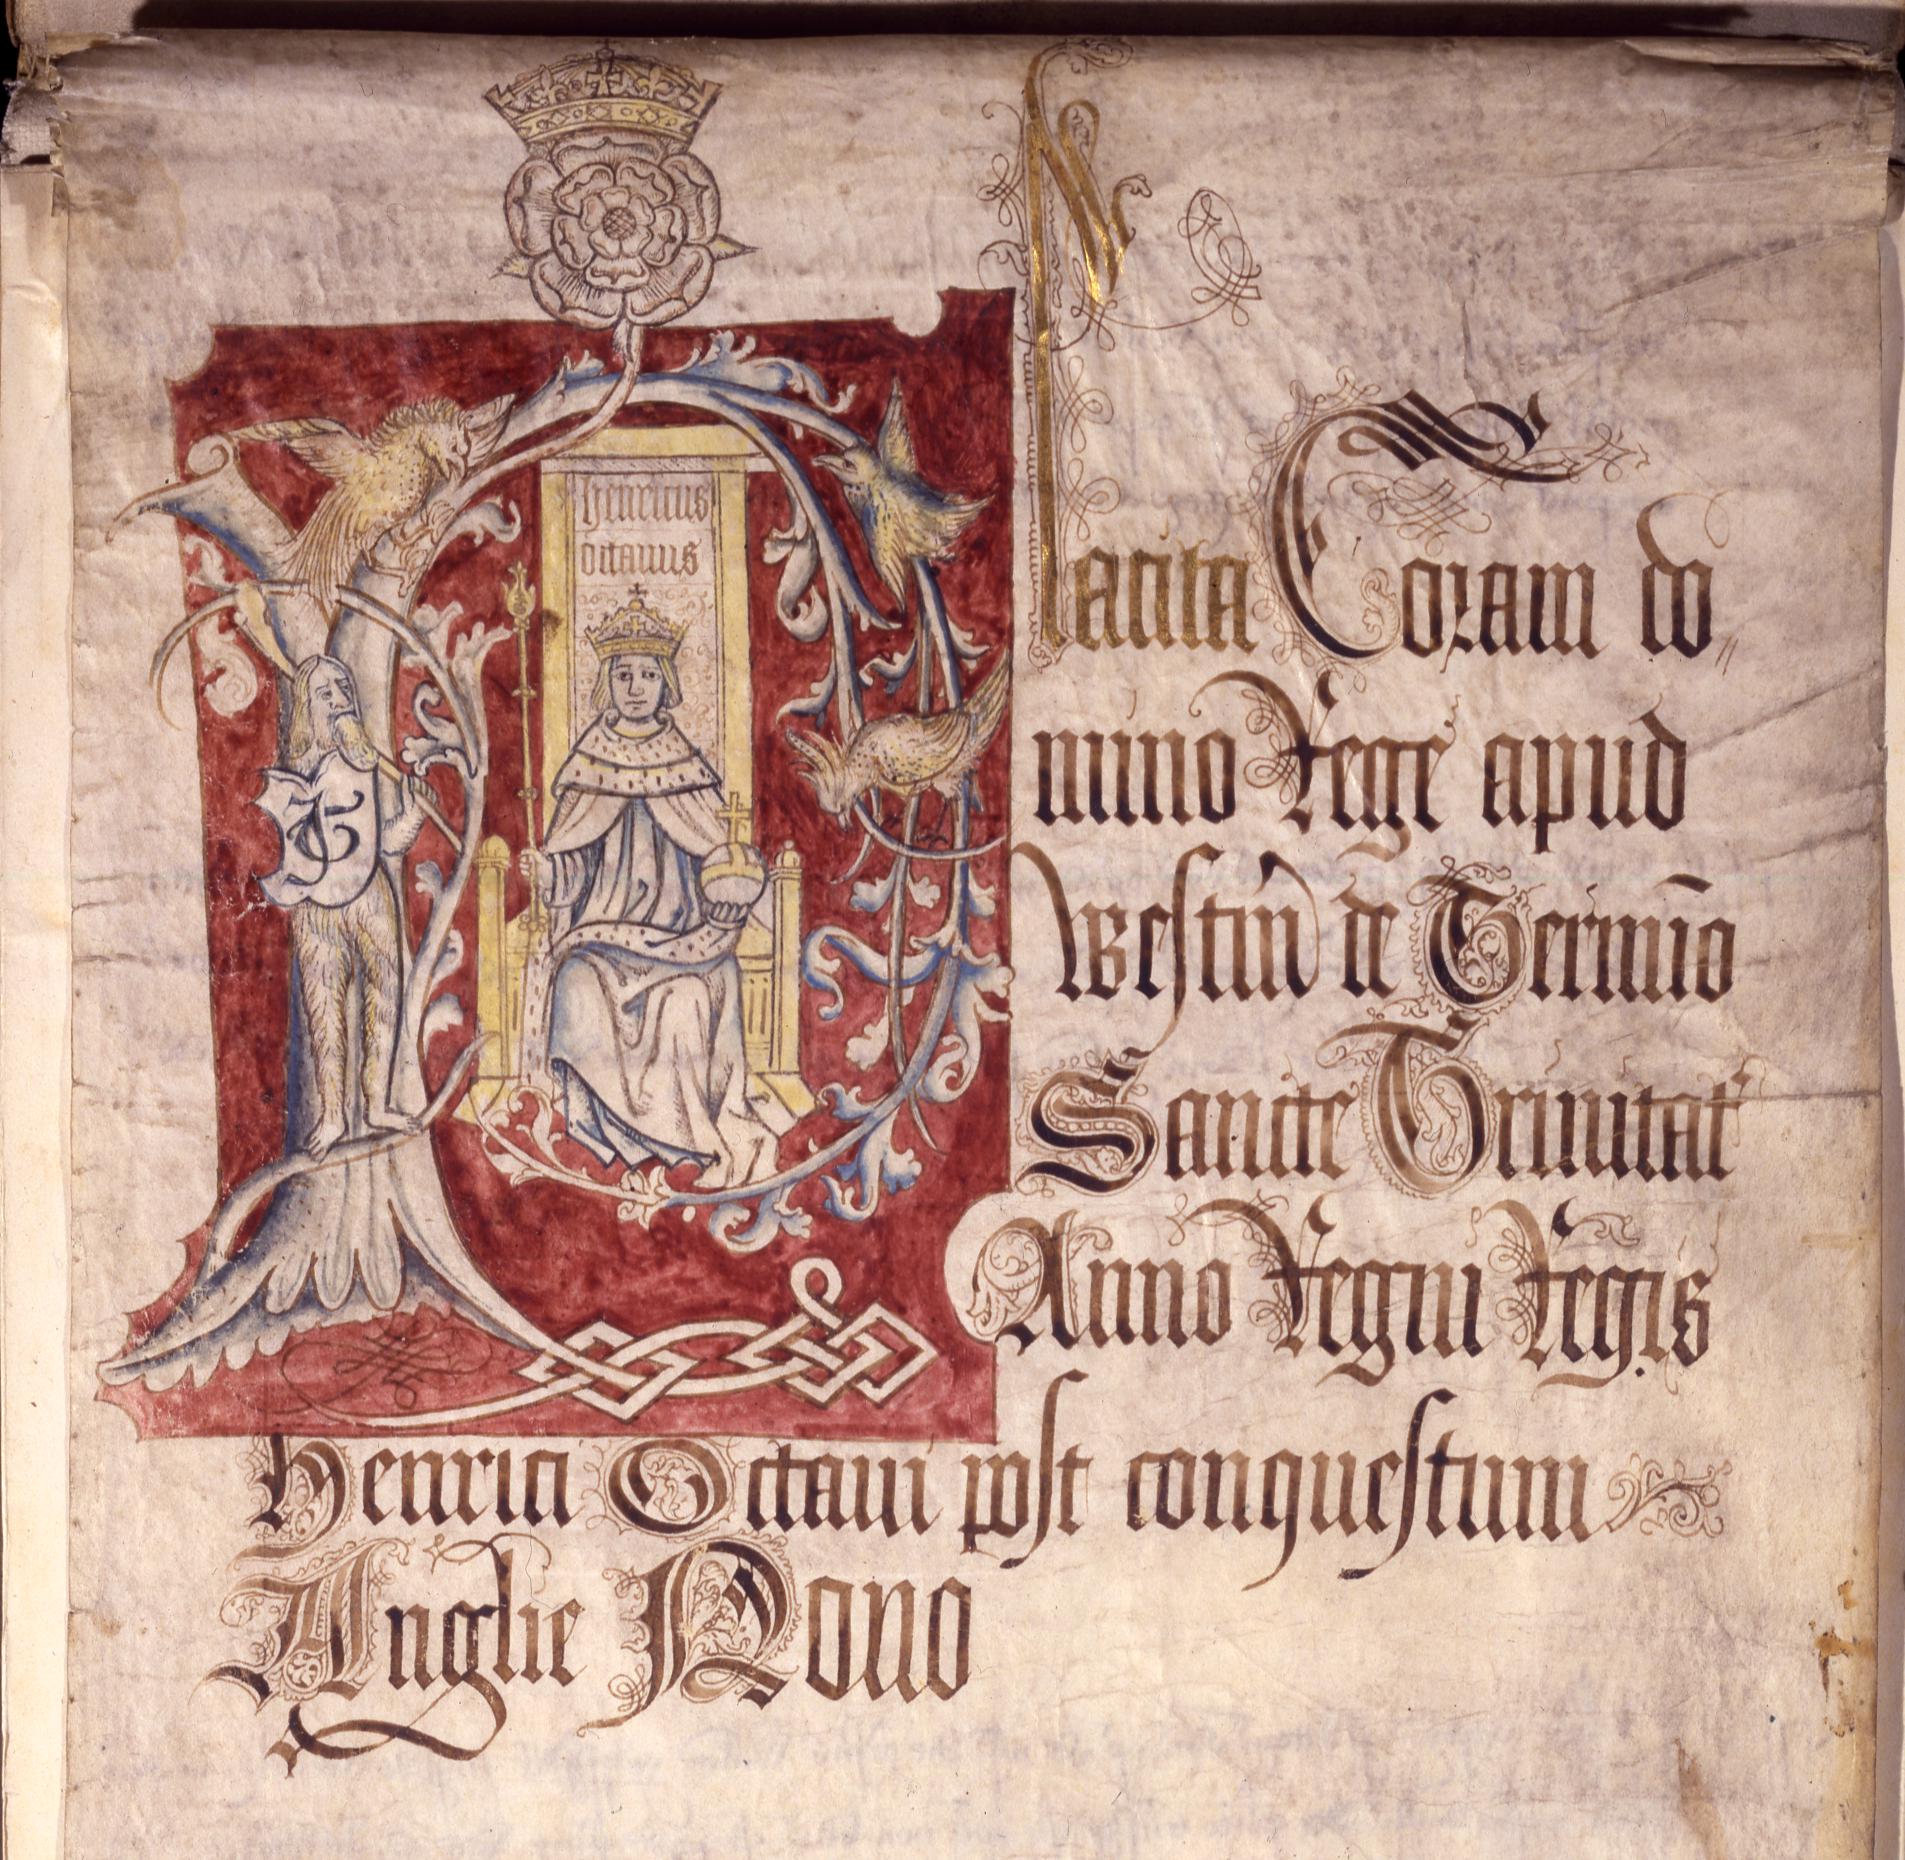 henricus
octauus
JG
Placita Coram do
mino Rege apud
Westm̄ de Termīo
Sancte Trinitat̄
Anno Regni Regis
henrici Octaui post conquestum
Anglie Nono